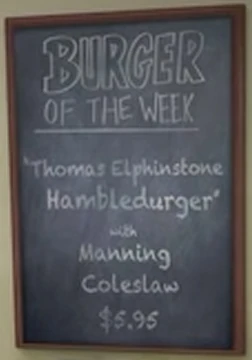 BURGER
OF THE WEEK
"Thomas Elphinstone
Hambledurger"
with
Manning
Coleslaw
$5.95